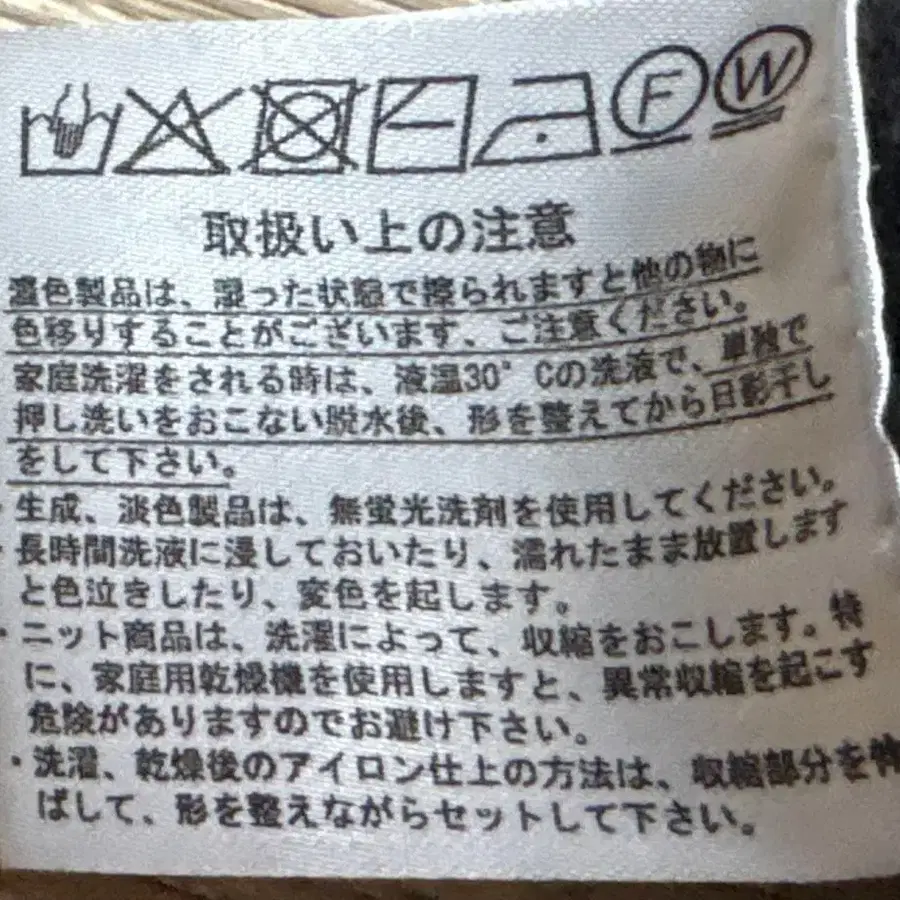 F W
取扱い上の注意
濃色製品は、湿った状態で擦られますと他の物に
色移りすることがございます、ご注意ください。
家庭洗濯をされる時は、液温30°Cの洗液で、単独で
押し洗いをおこない脱水後、形を整えてから日影干し
をして下さい。
・生成、淡色製品は、無蛍光洗剤を使用してください。
・長時間洗液に浸しておいたり、濡れたまま放置します
と色泣きしたり、変色を起します。
・ニット商品は、洗濯によって、収縮をおこします。特
に、家庭用乾燥機を使用しますと、異常収縮を起こす
危険がありますのでお避け下さい。
・洗濯、乾燥後のアイロン仕上の方法は、収縮部分を伸
ばして、形を整えながらセットして下さい。